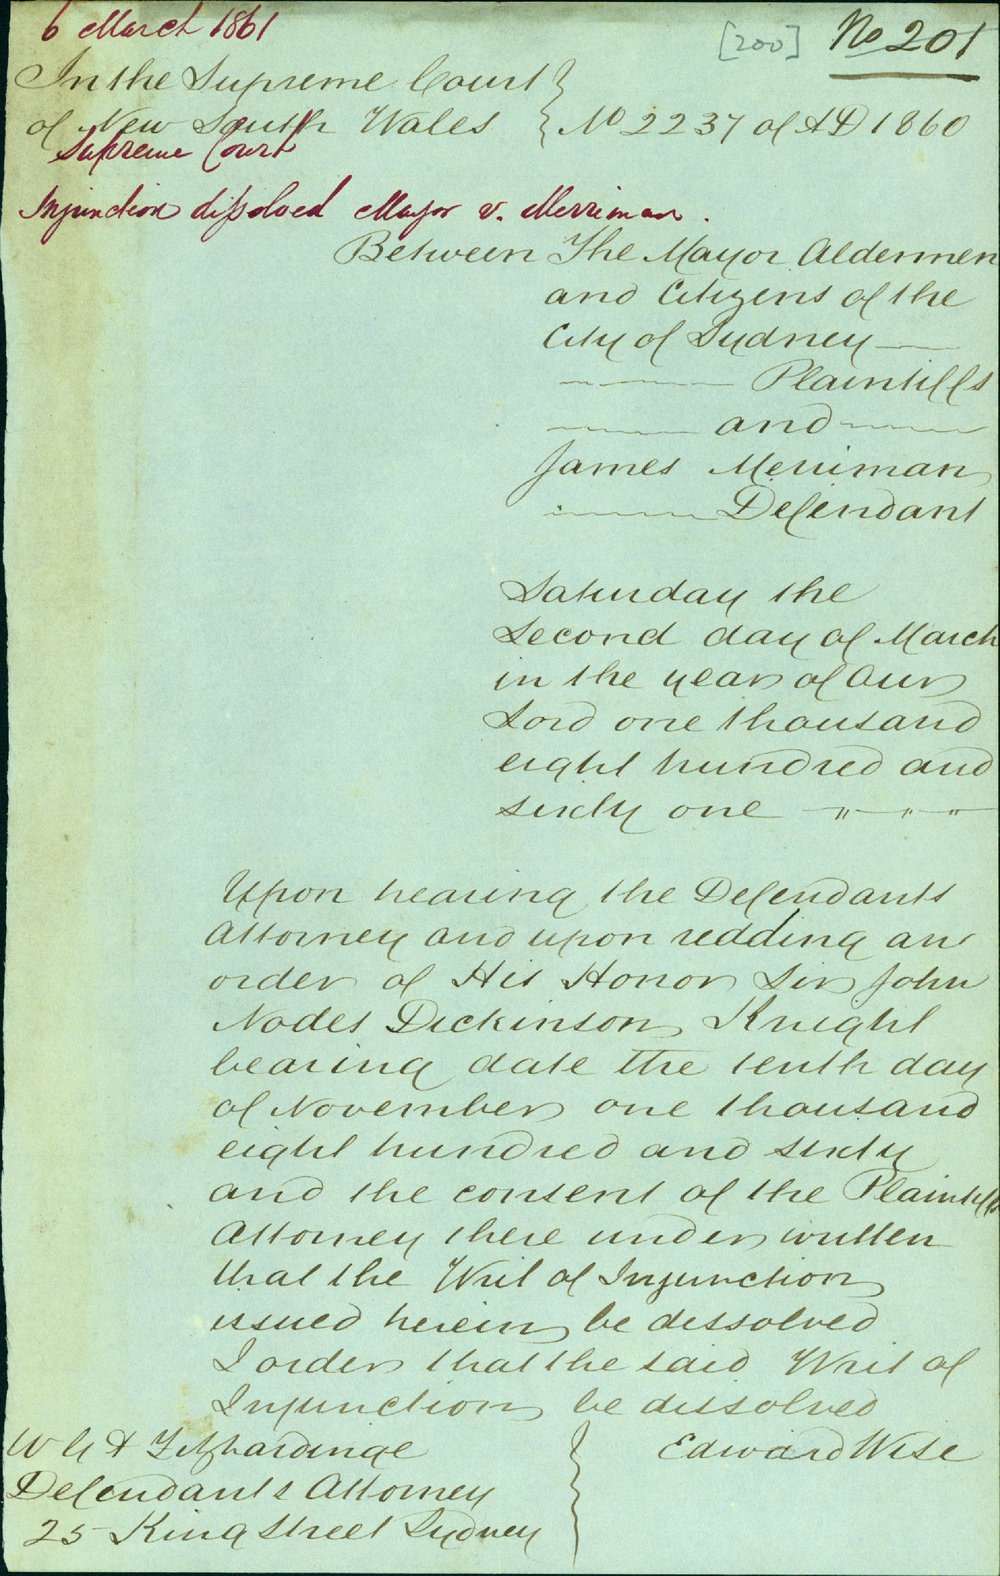 6 March 1861
[200] No 201
In the Supreme Court
of New South Wales } No 2237 of AD 1860
Supreme Court
Injunction dissolved Mayor v. Merriman.
Between The Mayor Aldermen
and Citizens of the
City of Sydney
Plaintiffs
and
James Merriman
Defendant
Saturday the
Second day of March
in the year of Our
Lord one thousand
eight hundred and
sixty one
Upon hearing the Defendants
Attorney and upon redding an
order of His Honor Sir John
Nodes Dickinson Knight
bearing date the tenth day
of November one thousand
eight hundred and sixty
and the consent of the Plaintiffs
Attorney there under written
that the Writ of Injunction
issued herein be dissolved
I order that the said Writ of
Injunction be dissolved
W G A Fitzhardinge
Edward Wise
Defendants Attorney
25 King Street Sydney